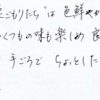 ごもりたち"は 色鮮やか
くつもの味も楽しめ
手ごろで ちょっとした